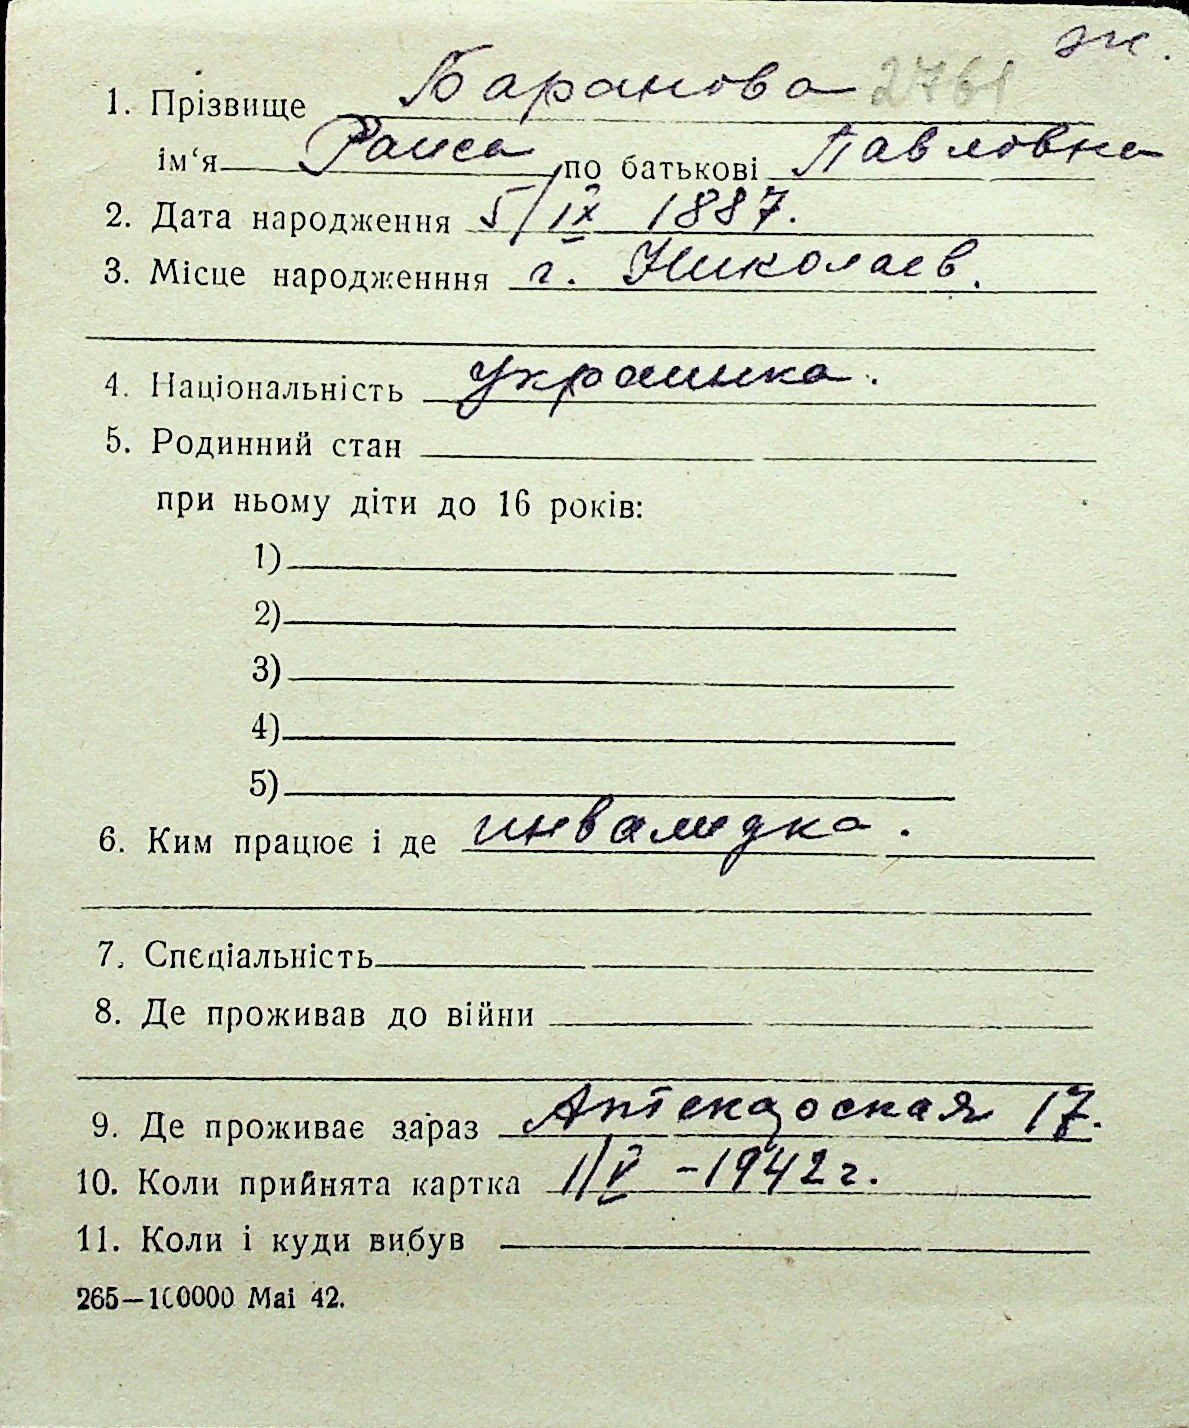 ж.
1. Прізвище Баранова 2761
ім‘я Раиса по батькові Павловна
2. Дата народження 5/IX 1887.
3. Місце народженння г. Николаев.
4. Національність украинка.
5. Родинний стан
при ньому діти до 16 років:
1)
2)
3)
4)
5)
6. Ким працює і де инвалидка.
7. Спеціальність
8. Де проживав до війни
9. Де проживає зараз Аптекарская 17.
10. Коли прийнята картка 1/V -1942 г.
11. Коли і куди вибув
265—100000 Mai 42.